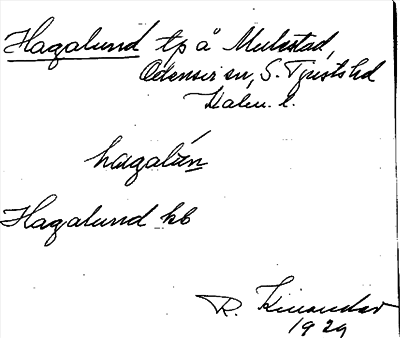 Hagalund tp å Mulstad,
Odensvi sn, S. Tjusts hd
Kalm. l.
hagalún
Hagalund kb
R. Kinander
1929